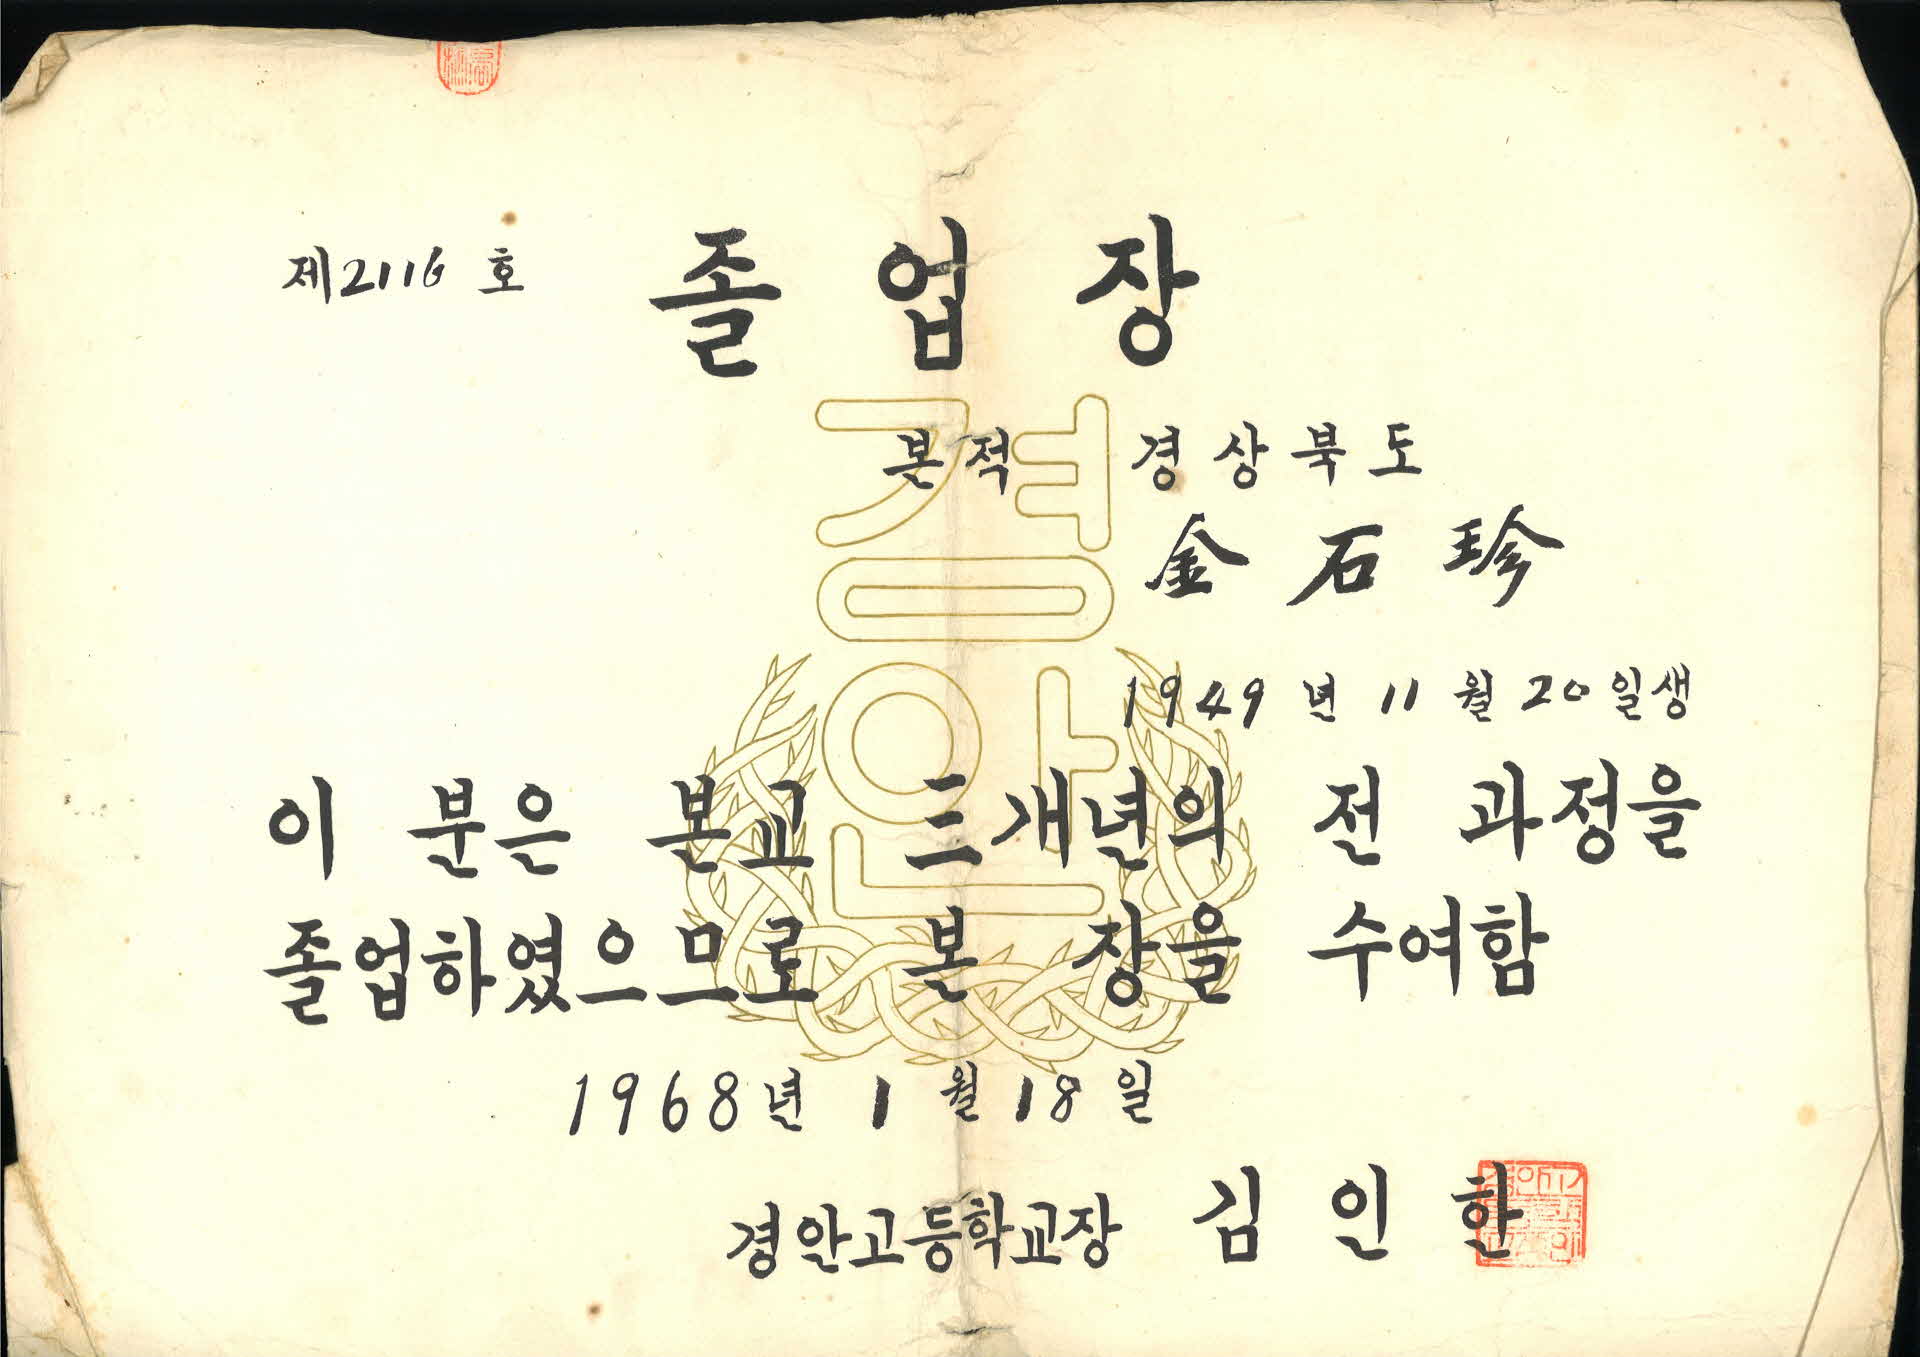 제2116호
졸업장
본적 경상북도
金石珍
1949년 11월 20일생
이 분은 본교 三개년의 전 과정을
졸업하였으므로 본 장을 수여함
1968년 1월 18일
경안고등학교장 김인한
경안